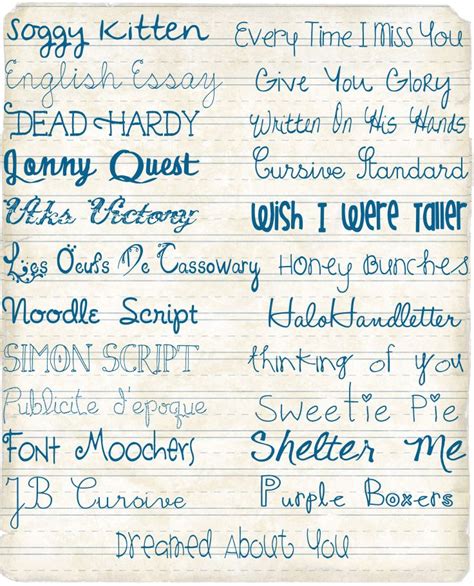 Soggy Kitten
Every Time I Miss You
English Essay
Give You Glory
DEAD HARDY
Written On His Hands
Jonny Quest
Cursive Standard
Utks Victory
Wish I Were Taller
Les Oeufs De Cassowary
Honey Bunches
Noodle Script
HaloHandletter
SIMON SCRIPT
thinking of you
Publicite d'epoque
Sweetie Pie
Font Moochers
Shelter Me
JB Cursive
Purple Boxers
Dreamed About You